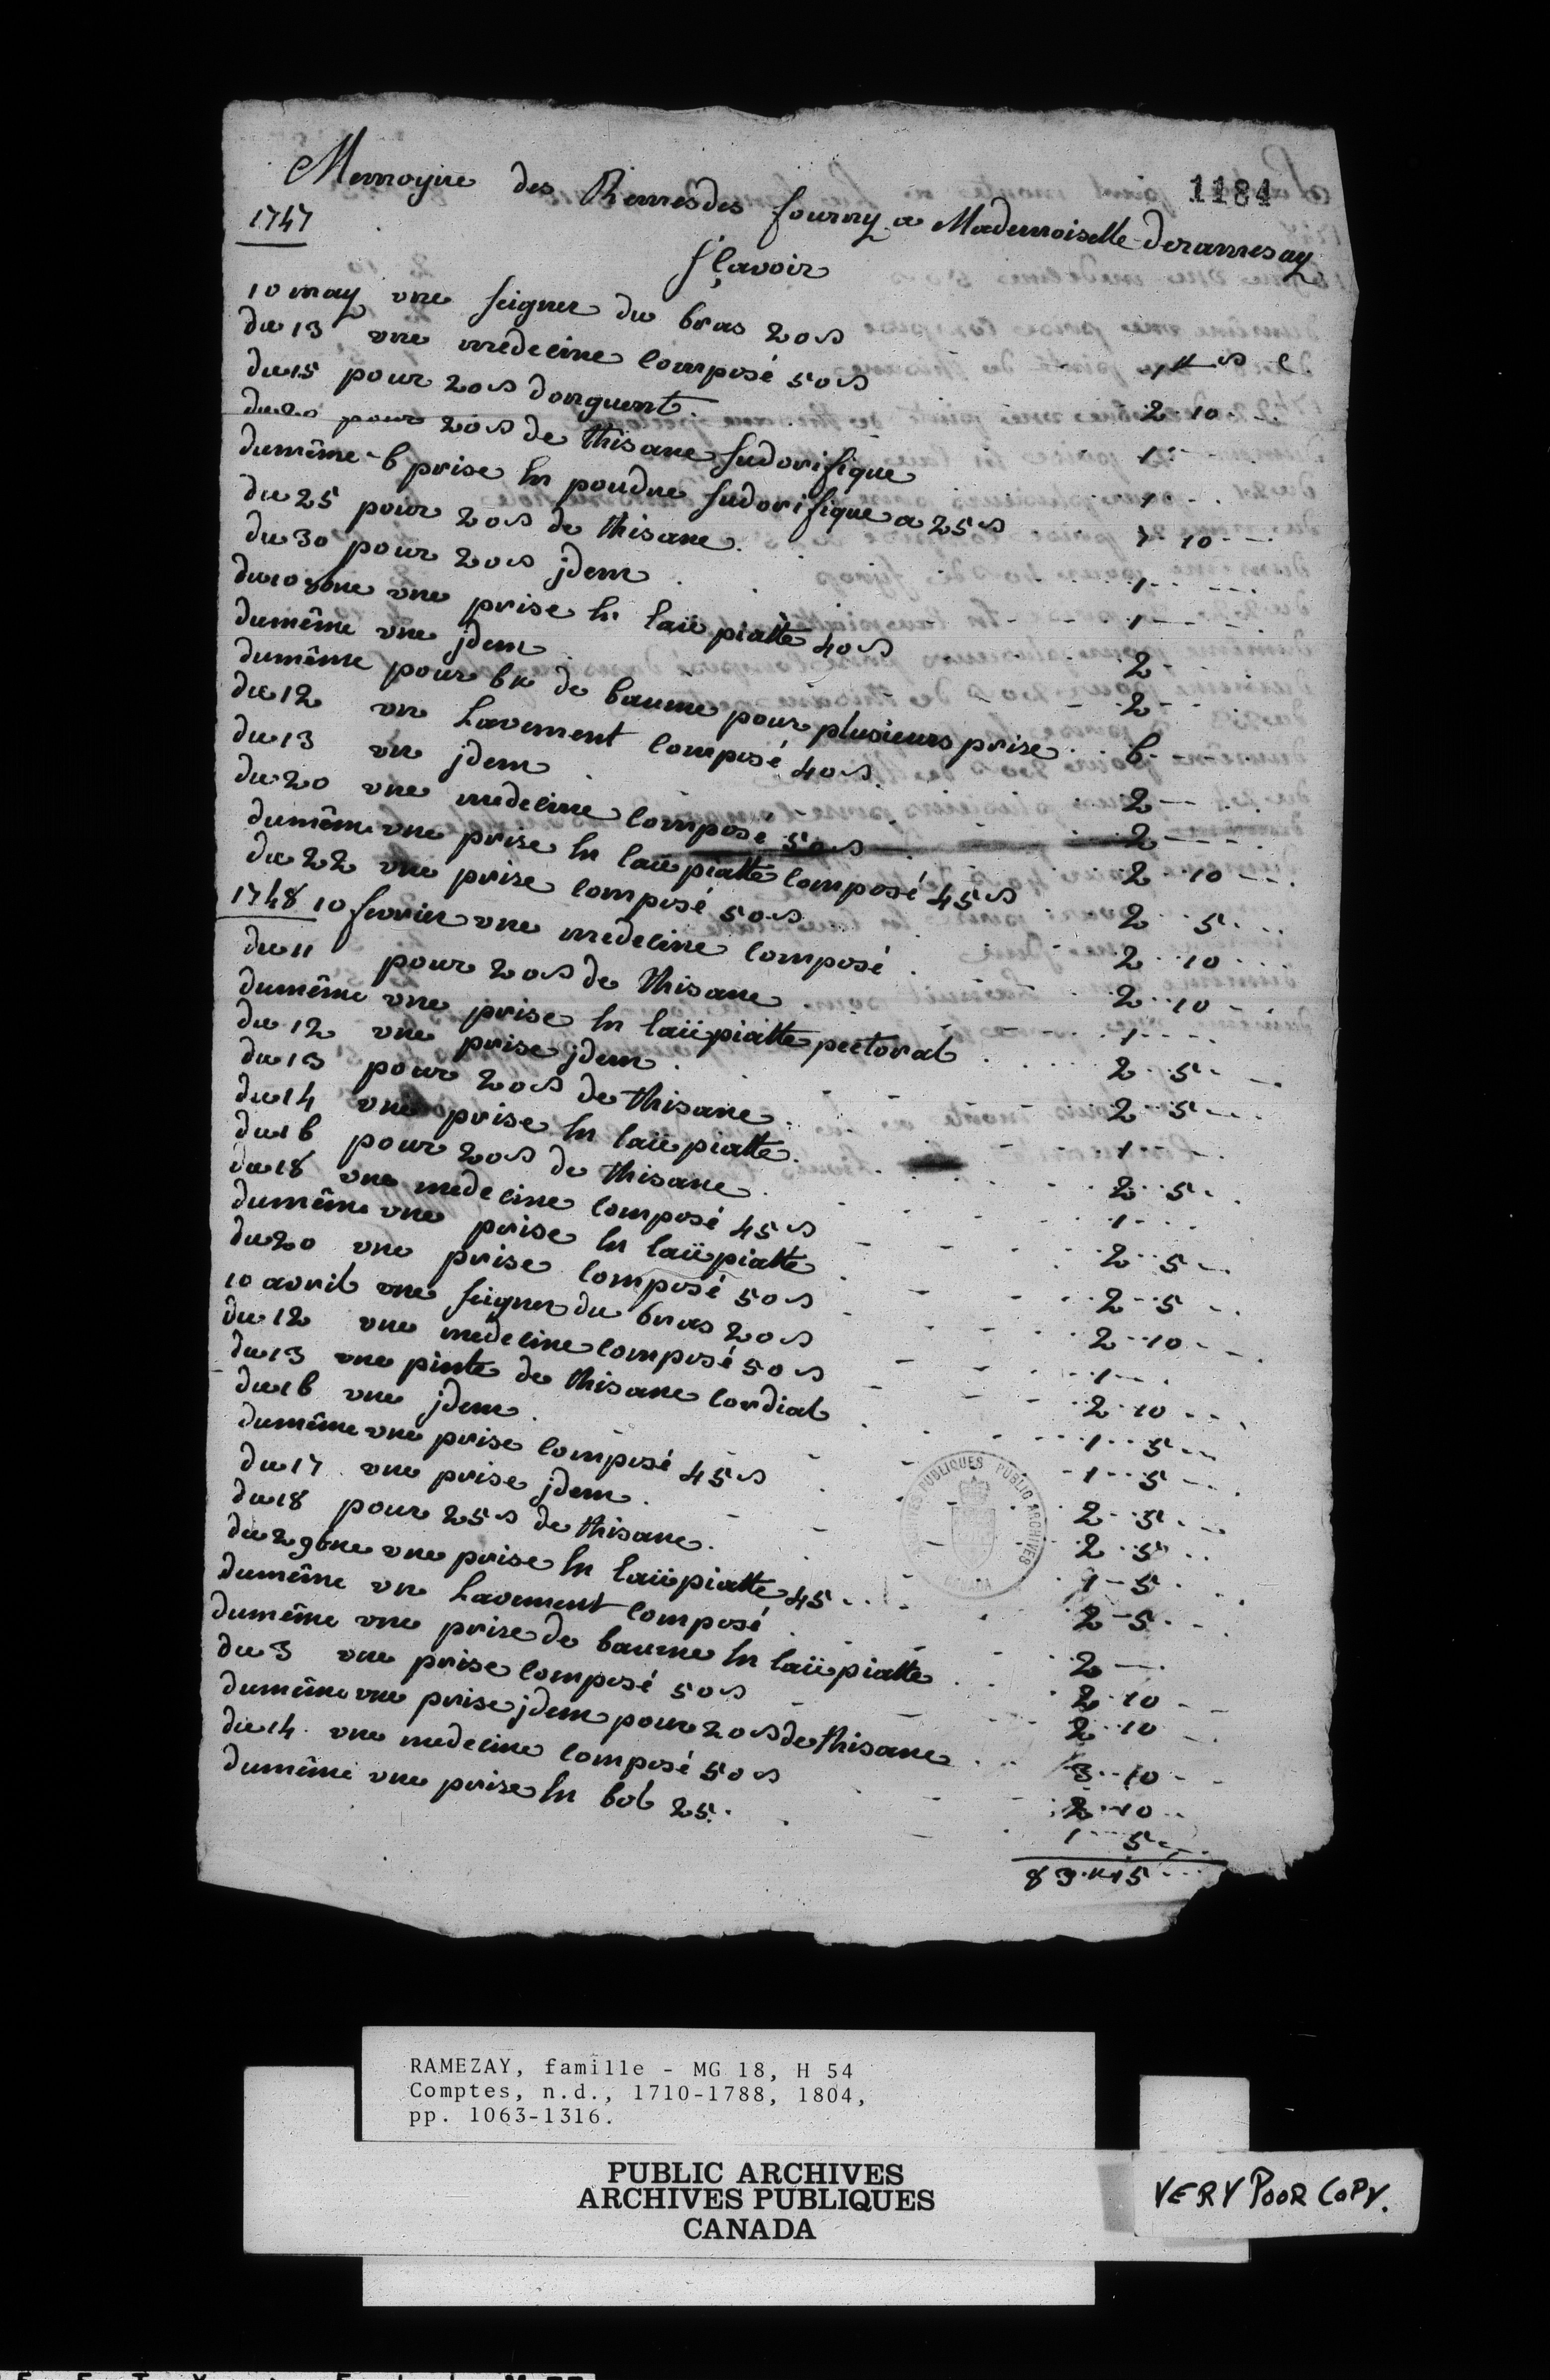 1184
Memoyire des Remesdes fourny a Mademoiselle deramesay
1747
sçavoir
10 may une seigner du bras 20s 1 ₶ s
du 13 une médecine composé 50s 2 10
du 15 pour 20s donguent 1
du 20 pour 20s de thisane sudorifique 1
dumême 6 prise en poudre sudorifique a 25s 7 10
du 25 pour 20s de thisane 1
du 30 pour 20s jdem 1
du 10 une prise en laii piatte 40s 2
dumême une jdem 2
dumême pour 6₶ de baume pour plusieurs prise 6
du 12 un Lavement composé 40s 2
du 13 un jdem 2
du 20 une medecine composé 50s 2 10
dumême une prise en laii piatte composé 45s 2 5
du 22 une prise composé 50s 2 10
1748 10 fevrier une medecine composé 2 10
du 11 pour 20s de thisane 1
dumême une prise en laii piatte pectoral 2 5
du 12 une prise jdem 2 5
du 13 pour 20s de thisane 1
du 14 une prise en laii piatte 2 5
du 16 pour 20s de thisane 1
du 18 une medecine composé 45s 2 5
dumême une prise en laii piatte 2 5
du 20 une prise composé 50s 2 10
10 avril une seigner du bras 20s 1
du 12 une medecine composé 50s 2 10
du 13 une pinte de thisane cordial 1 5
du 16 une jdem 1 5
dumême une prise composé 45s 2 5
du 17 une prise jdem 2 5
du 18 pour 25s de thisane 1 5
du 2 9bre une prise en laii piatte 45 2 5
dumême un Lavement composé 2
dumême une prise de baume en laii piatte 2 10
du 3 une prise composé 50s 2 10
dumême une prise jdem pour 20s de thisane 3 10
du 14 une medecine composé 50s 2 10
dumême une prise en bol 25 1 5
83 ₶ 15
ARCHIVES PUBLIQUES PUBLIC ARCHIVES
CANADA
RAMEZAY, famille - MG 18, H 54
Comptes, n.d., 1710-1788, 1804,
pp. 1063-1316.
PUBLIC ARCHIVES
ARCHIVES PUBLIQUES
CANADA
VERY POOR COPY.